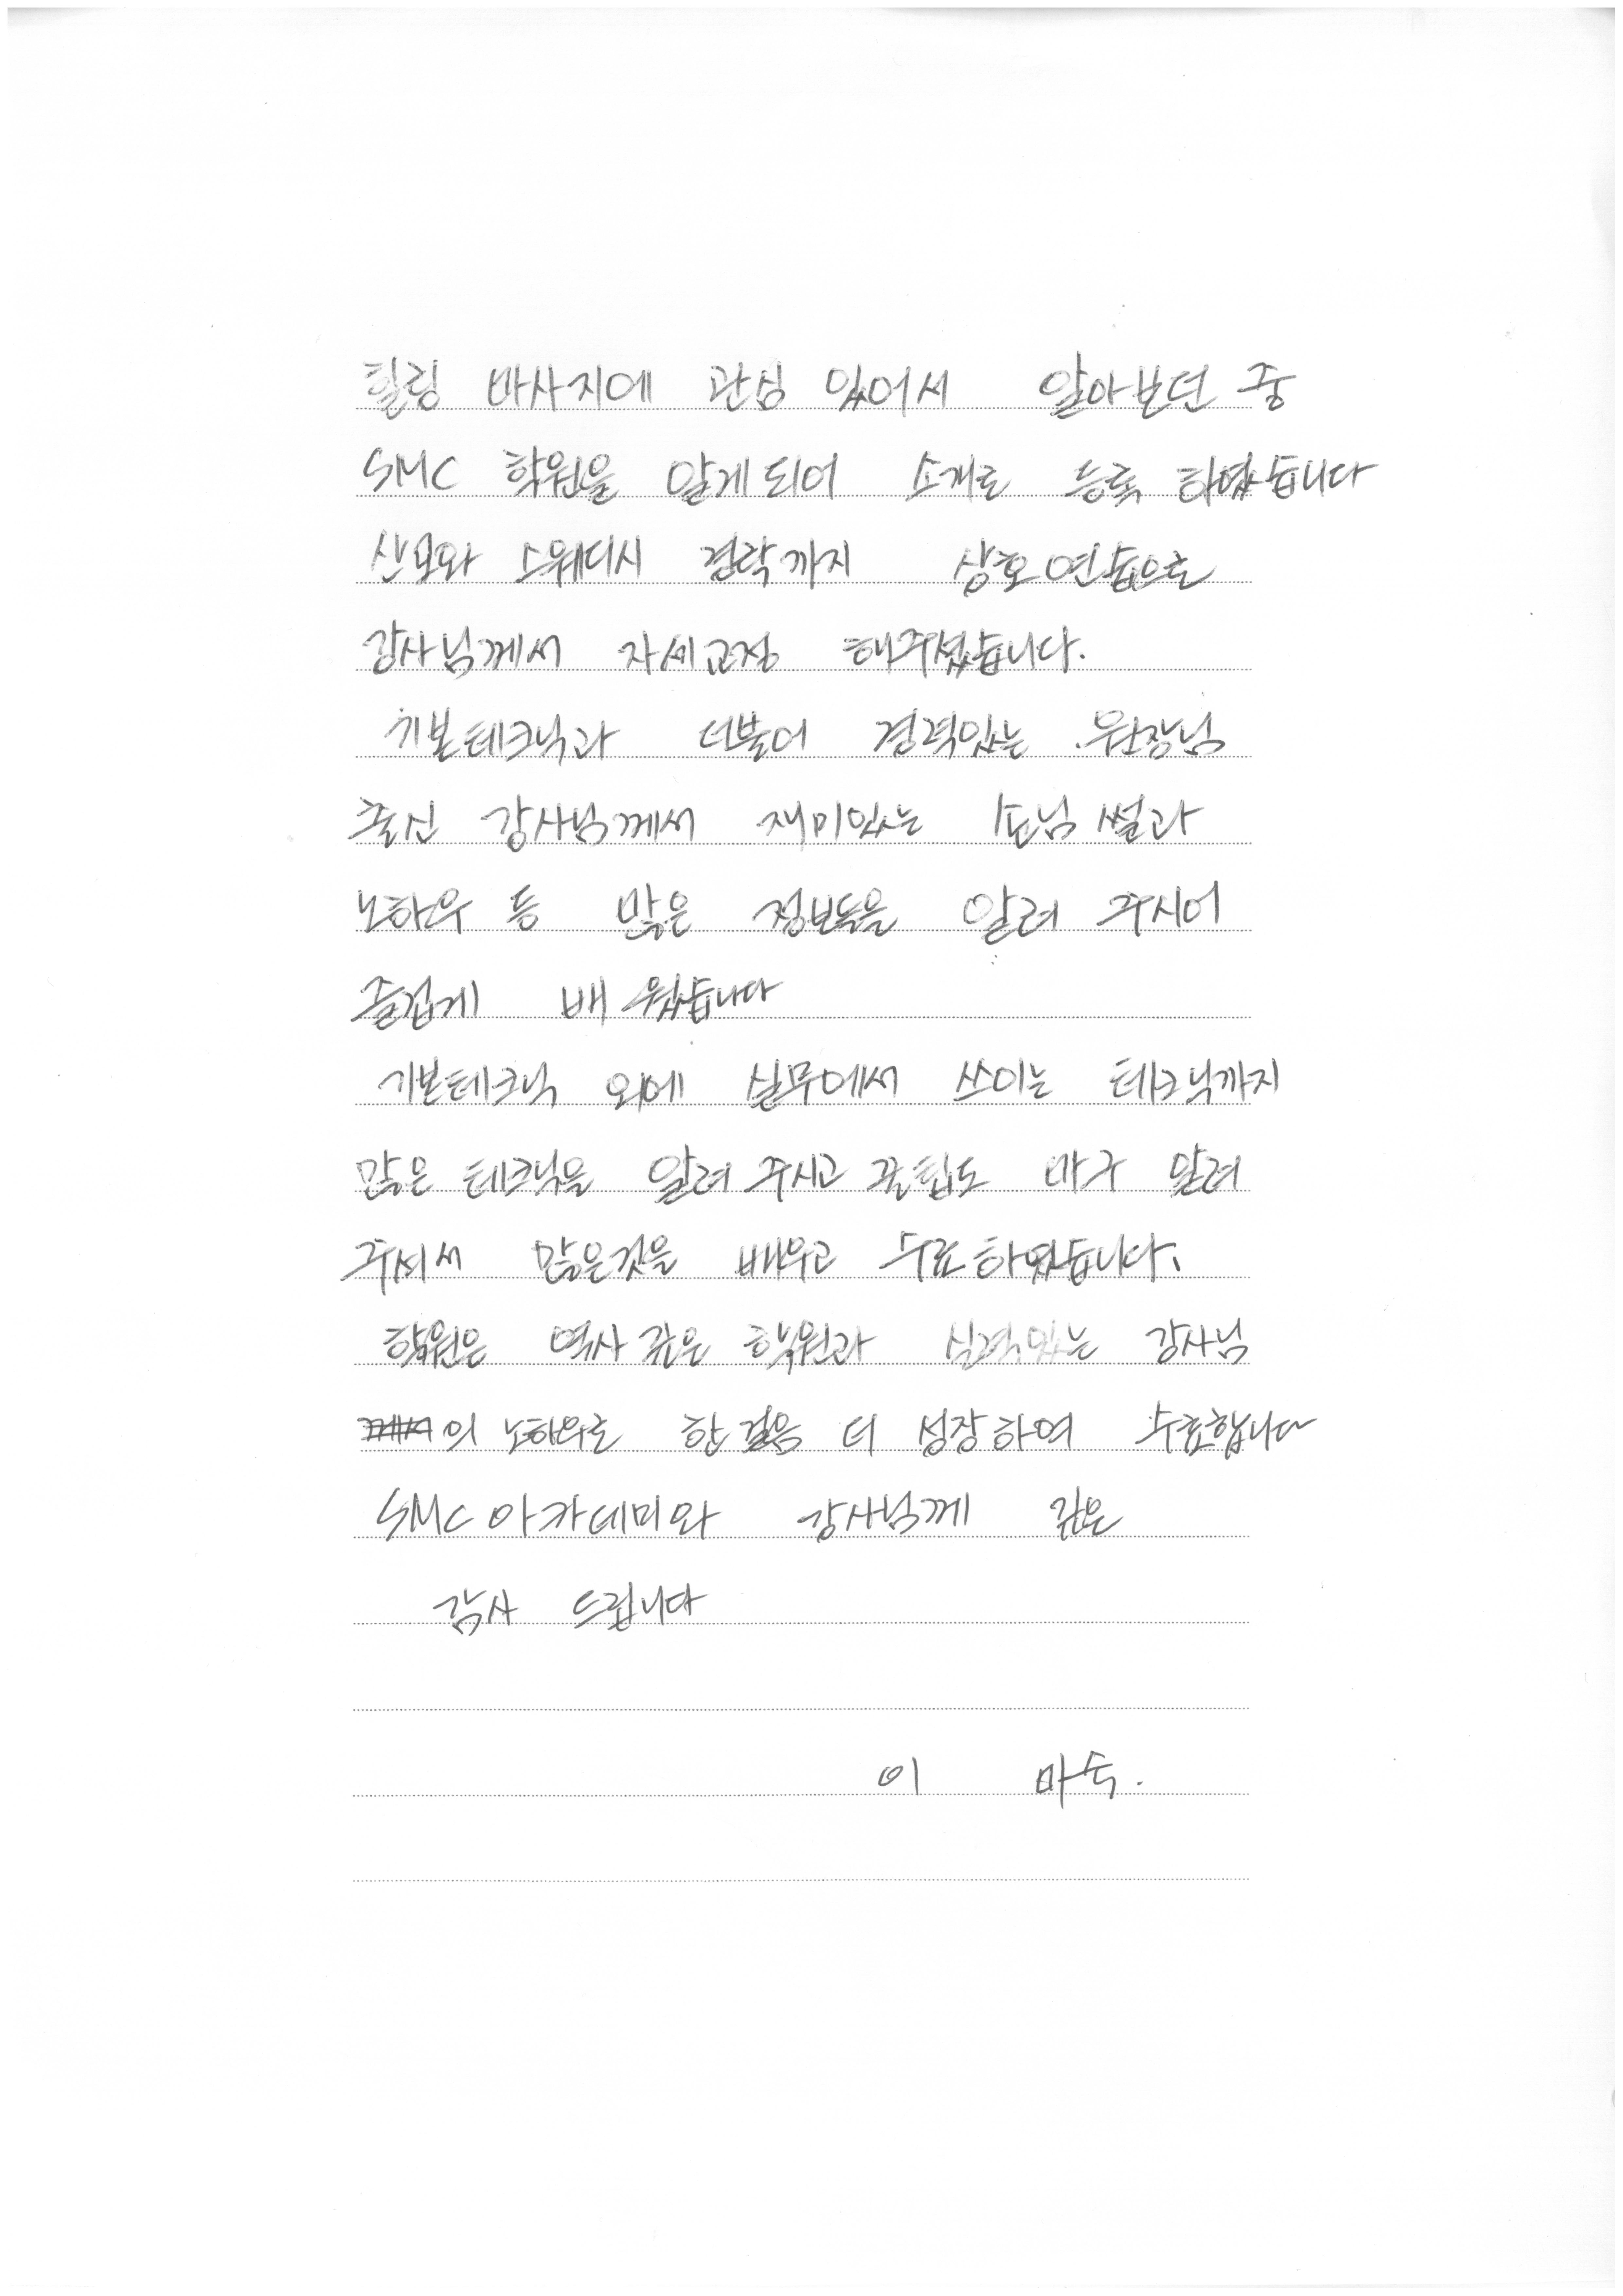 힐링 마사지에 관심 있어서 알아보던 중
SMC 학원을 알게되어 소개로 등록 하였습니다
산모와 스웨디시 경락까지 상호연습으로
강사님께서 자세교정 해주셨습니다.
기본테크닉과 더불어 경력있는 원장님
출신 강사님께서 재미있는 손님 썰과
노하우 등 많은 정보들을 알려 주시어
즐겁게 배웠습니다
기본테크닉 외에 실무에서 쓰이는 테크닉까지
많은 테크닉을 알려 주시고 꿀팁도 마구 알려
주셔서 많은것을 배우고 수료하였습니다.
학원은 역사 깊은 학원과 실력있는 강사님
의 노하우로 한 걸음 더 성장하여 수료합니다
SMC 아카데미와 강사님께 깊은
감사 드립니다
이 마숙.